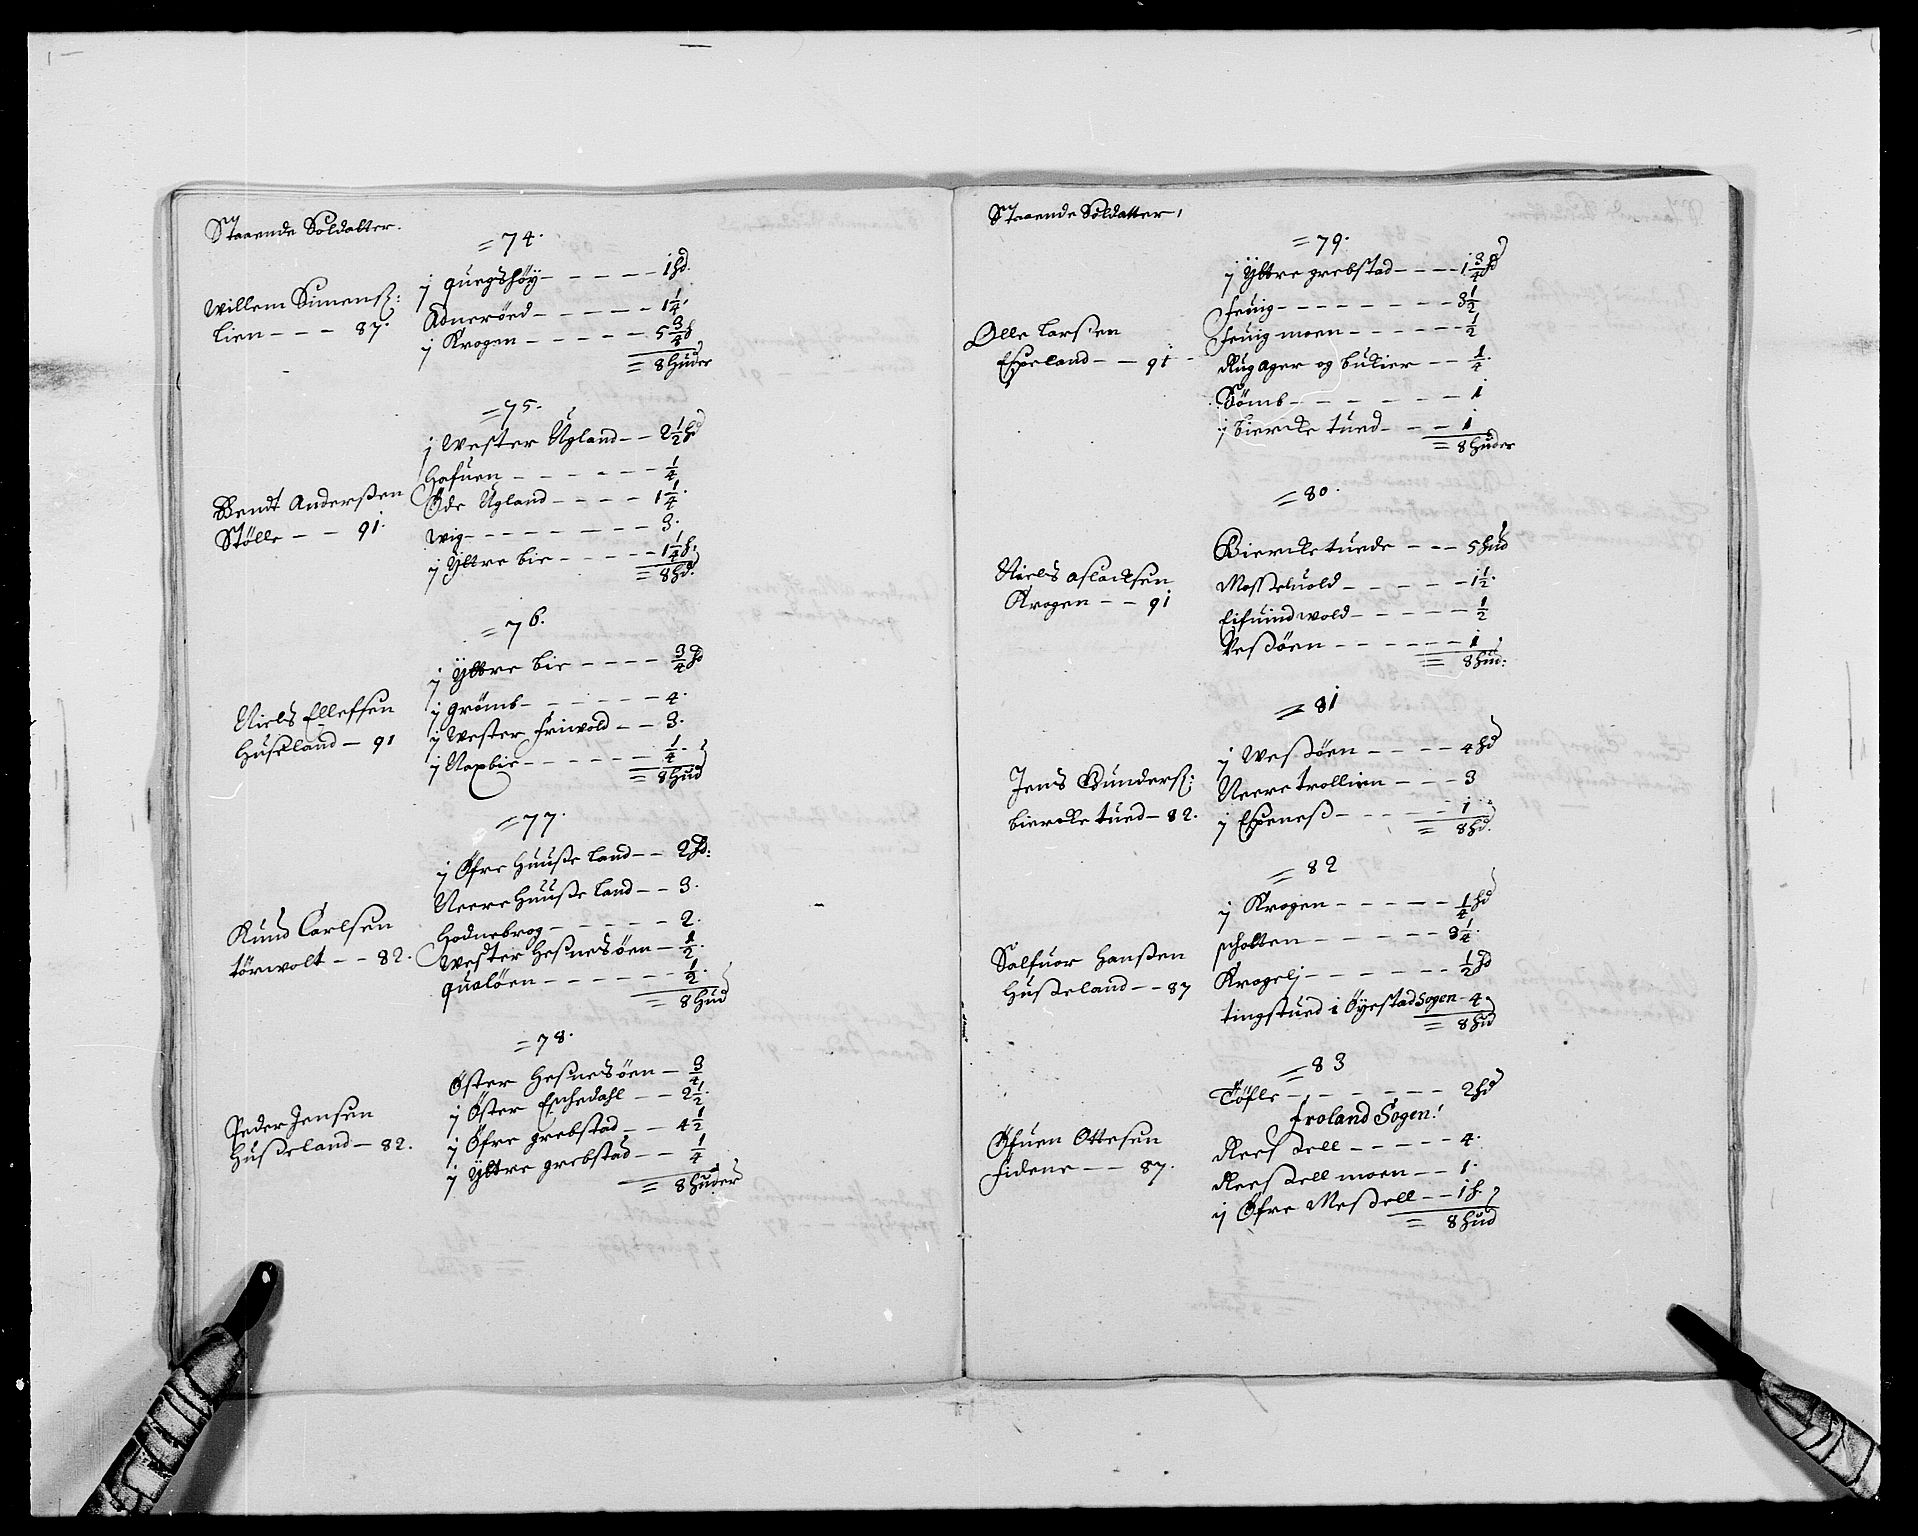 Staaende Soldatter.
= 74.
Willem Simens:
Lien - - - 87.
j quegshöy - - - - - 1 hd.
Adneröed - - - - - 1 1/4
j Krogen - - - - - 5 3/4 h
= 8 huder
= 75.
Bendt Anderßen
Stölle - - 91.
j Wester Ugland - - 2 1/2 hd
Hafuen - - - - - 1/4
Öde Ugland - - - - 1 1/4.
Wig - - - - - - - 3.
j Yttre bie - - - - - 1 1/4 h.
= 8 hd.
= 76.
Niels Elleffsen
Huseland - 91
j Yttre bie - - - - 3/4 hd
j grömb - - - - - - 4.
j Wester friwold - - 3.
j Naxbie - - - - - - 1/4.
= 8 hud
= 77.
Knud Carlsen
törwolt - - 82.
j Öfre Huußeland - - 2 hd:
Neere Huußeland - - 3.
Hodnebrog - - - - - 2.
Wester Heßnesöen - 1/2.
qualöen - - - - - 1/2.
= 8 hud
= 78.
Peder Jensen
Hußeland - 82.
Öster Heßnesöen - 3/4
j Öster Eschedahl - - 2 1/2.
j Öfre grebstad - - 4 1/2
j Yttre grebstad - - 1/4
= 8 huder
Staaende Soldatter,
= 79.
Olle Larßen
Espeland - - 91
j Yttre grebstad - - - - 1 3/4 hd
feuig - - - - - - - - 3 1/2
feuig moen - - - - - - 1/2
Rugager og bukier - - 1/4.
Sömb - - - - - - - 1
j biercketued - - - 1
= 8 huder
= 80.
Niels Aslachsen
Krogen - - 91
Biercketuede - - - 5 hud
Moßeluold - - - - - 1 1/2.
Eifuindwold - - - - - 1/2
Veßöen - - - - - - 1
= 8 hud:
= 81
Jens Gunders:
biercketued - 82.
j Weßöen - - - - 4 hd
Neere trollien - - - 3
j Espeneß - - - - - 1
= 8 hd.
= 82
Salfuor Hanßen
Hußeland - - 87
j Krogen - - - - - 1/4 hd
scholten - - - - - 3 1/4.
Krogelj - - - - - - 1/2 hd
tingstued i Öyestad Sogen - 4.
= 8 hud
= 83
Öfuen Ottesen
fidene - - 87.
Töfle - - - - - - 2 hd
froland Sogen!
Reestell - - - - - 4.
Reestell moen - - 1.
j Öfre Meßell - - 1 h.
= 8 hud